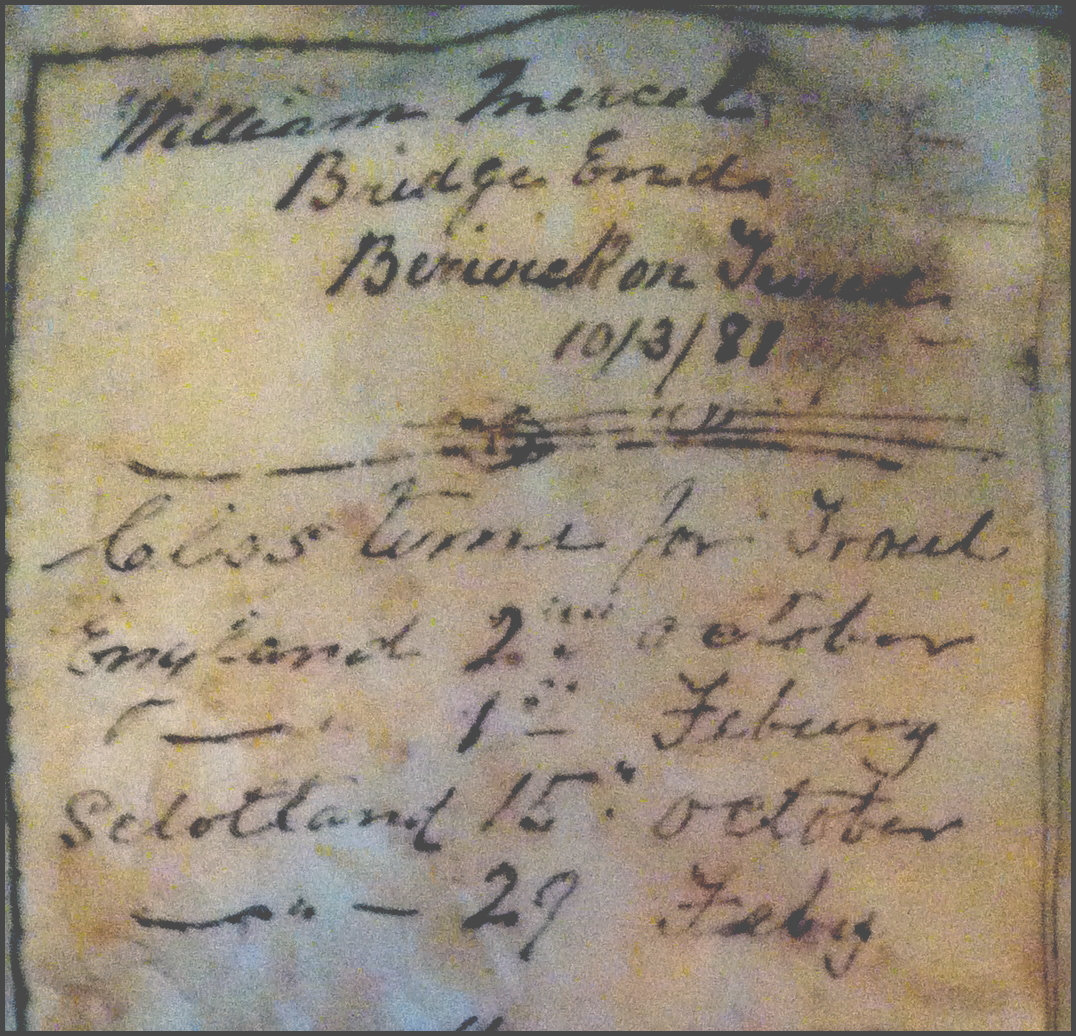 William
Bridge End
Berwick on Tweed
10/3/81
Clos time for Trout
England 2nd october
1st Febury
Sclotland 15 " october
— " — 29 Feby